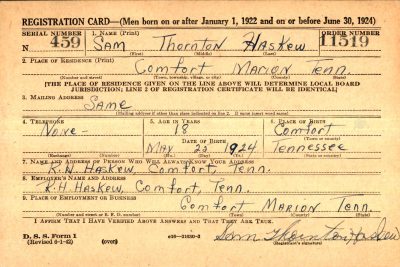 REGISTRATION CARD—(Men born on or after January 1, 1922 and on or before June 30, 1924)
SERIAL NUMBER 1. NAME (Print) ORDER NUMBER
N 459 Sam Thornton Haskew 11519
(First) (Middle) (Last)
2. PLACE OF RESIDENCE (Print)
Comfort Marion Tenn.
(Number and street) (Town, township, village, or city) (County) (State)
[THE PLACE OF RESIDENCE GIVEN ON THE LINE ABOVE WILL DETERMINE LOCAL BOARD
JURISDICTION; LINE 2 OF REGISTRATION CERTIFICATE WILL BE IDENTICAL]
3. MAILING ADDRESS
Same
(Mailing address if other than place indicated on line 2. If same insert word same)
4. TELEPHONE 5. AGE IN YEARS 6. PLACE OF BIRTH
None- 18 Comfort
DATE OF BIRTH (Town or county)
May 23 1924 Tennessee
(Exchange) (Number) (Mo.) (Day) (Yr.) (State or country)
7. NAME AND ADDRESS OF PERSON WHO WILL ALWAYS KNOW YOUR ADDRESS
R.H. Haskew, Comfort, Tenn.
8. EMPLOYER'S NAME AND ADDRESS
R.H. Haskew, Comfort, Tenn.
9. PLACE OF EMPLOYMENT OR BUSINESS
Comfort Marion Tenn.
(Number and street or R. F. D. number) (Town) (County) (State)
I AFFIRM THAT I HAVE VERIFIED ABOVE ANSWERS AND THAT THEY ARE TRUE.
D. S. S. Form 1
(Revised 6-1-42) (over) Sam Thornton Haskew
(Registrant's signature)